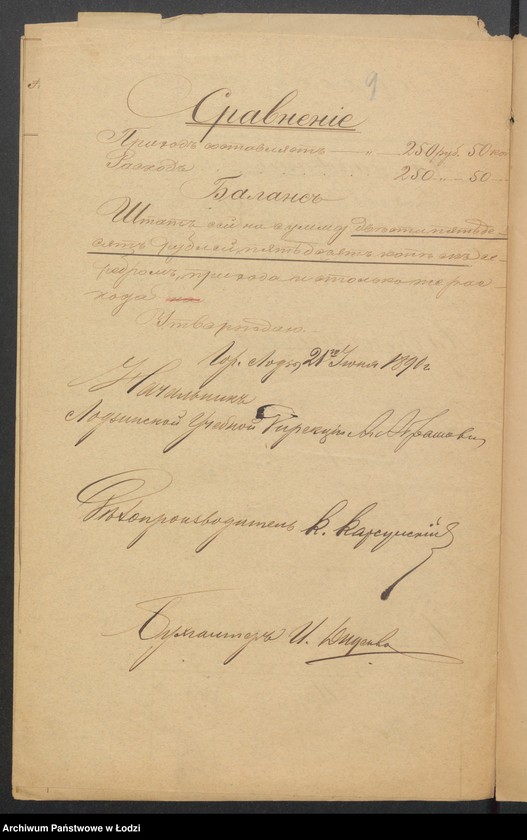 9
Сравненіе
Приходъ составляетъ — „ — 250 руб. 50 коп
Расходъ 250 „ — 50 —
Балансъ
Штатъ сей на сумму двѣсти пятьде-
сятъ рублей пятьдесятъ коп. се-
ребромъ, прихода и столько же рас-
хода
Утверждаю.
Гор. Лодзь, 21го Іюня 1890 г
Начальникъ
Лодзинской Учебной Дирекціи
Дѣлопроизводитель К.
Бухгалтеръ И.
Archiwum Państwowe w Łodzi